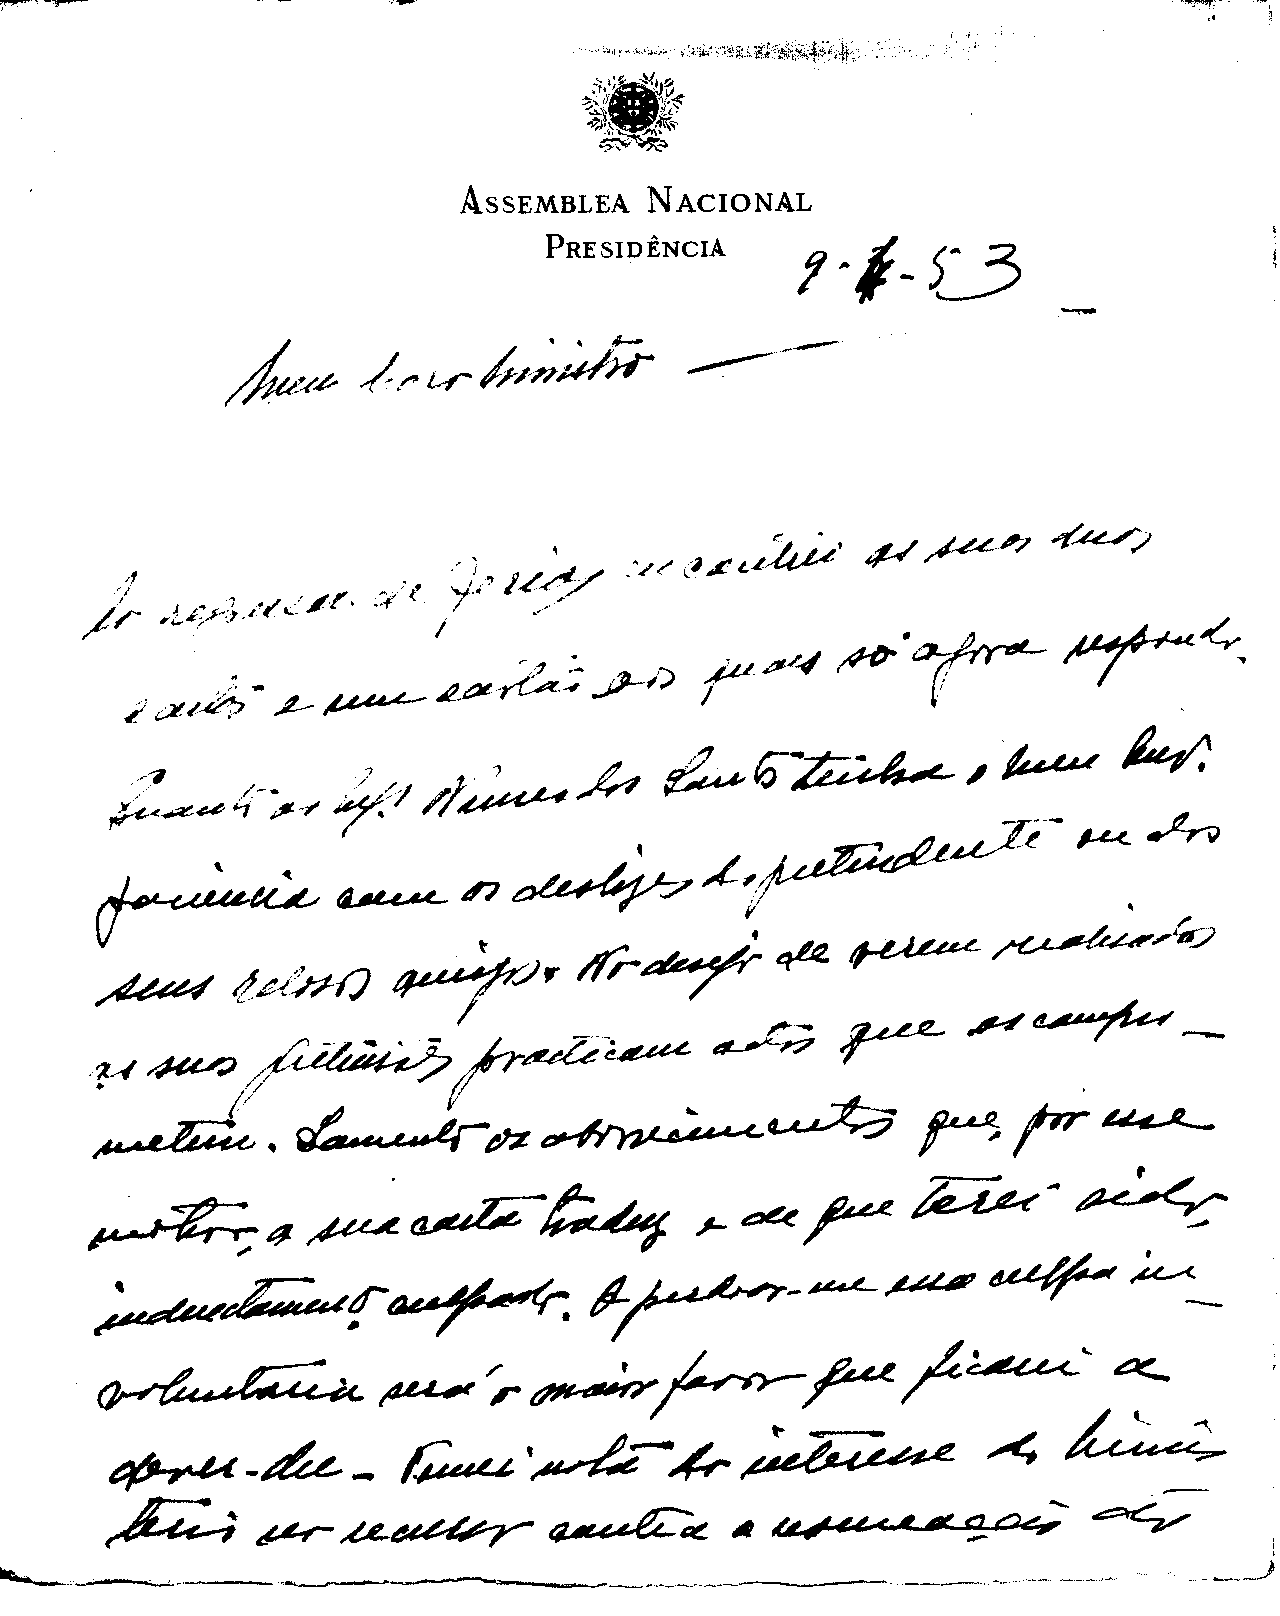 ASSEMBLEA NACIONAL
PRESIDÊNCIA
9- -53
Meu caro Ministro —
Ao regressar de ferias encontrei as suas duas
cartas e um cartão aos quais só agora respondo.
Quanto ao Nunes dos Santos tenha o meu Amº.
paciencia com os deslizes do pretendente ou dos
seus zelosos amigos. No desejo de verem realisadas
as suas pretensões practicam actos que os compro-
metem. Lamento os aborrecimentos que, por esse
motivo, a sua carta traduz e de que terei sido,
indirectamente, culpado. O perdoar-me essa culpa in-
voluntaria será o maior favor que ficarei a
dever-lhe – Tomei nota do interesse do Minis-
terio no recurso contra a nomeação do